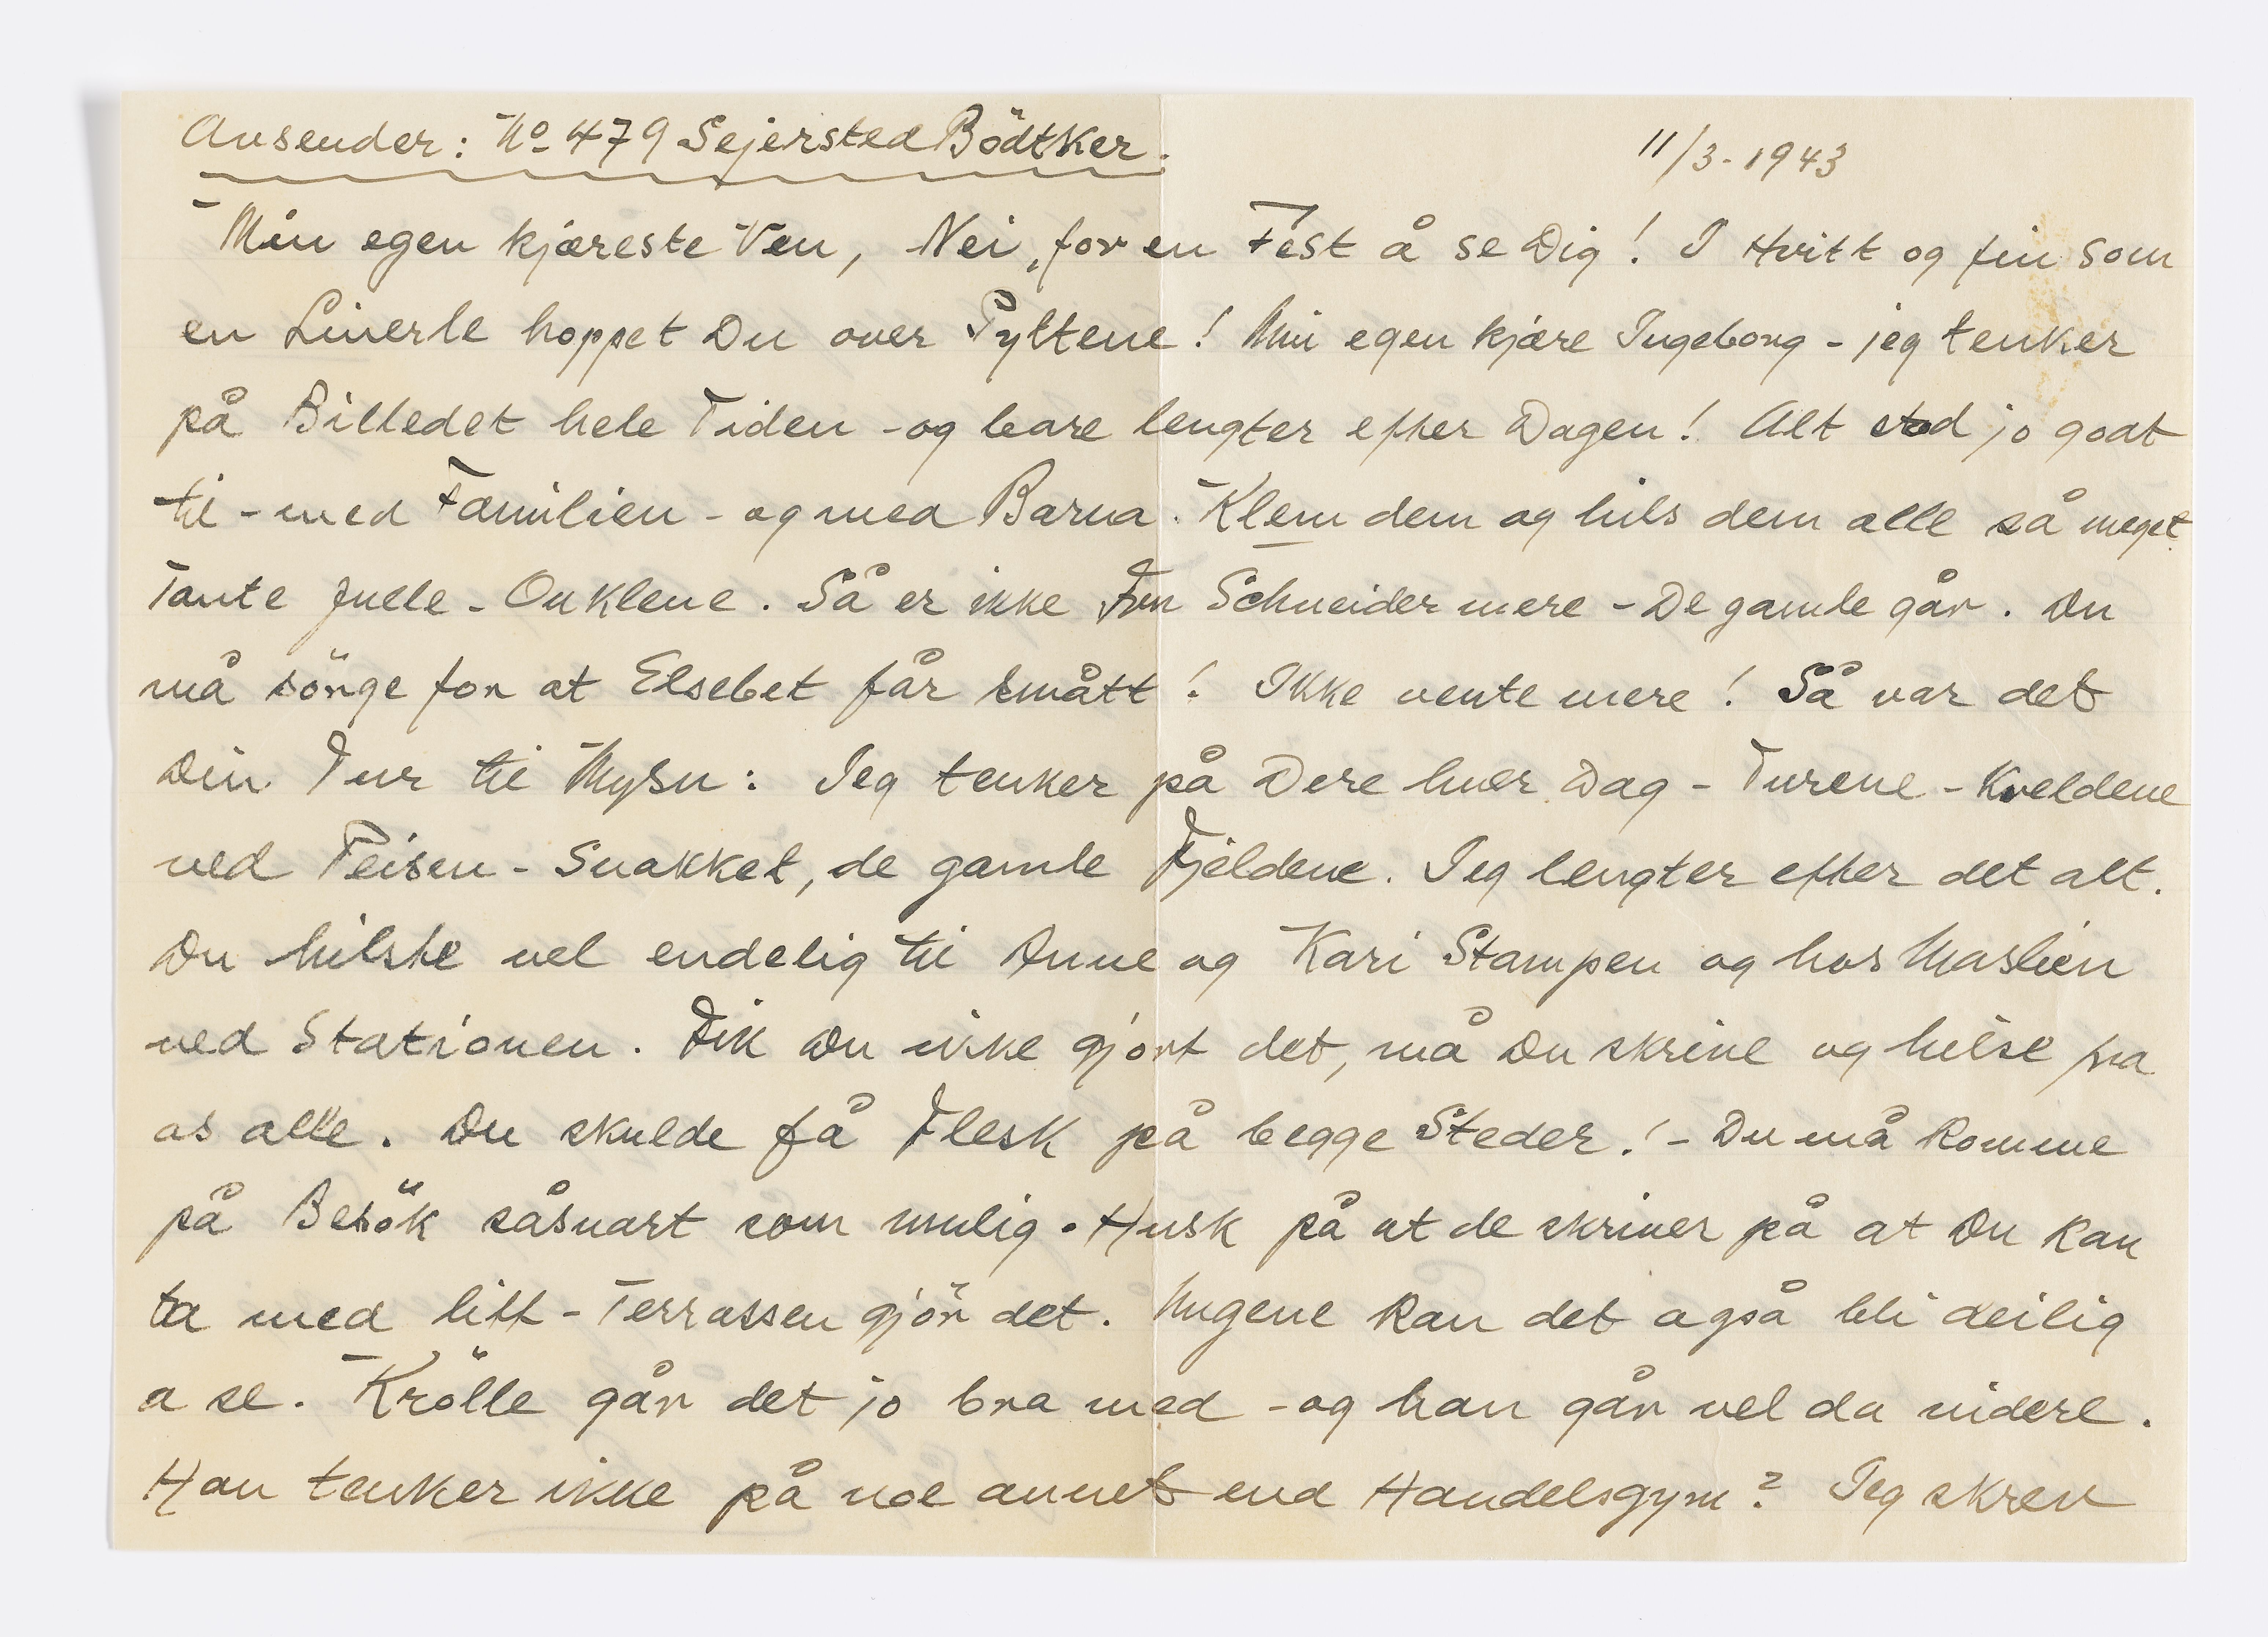 Avsender: No 479 Sejersted Bödtker. 11/3-1943
Min egen kjæreste Ven, Nei, for en Fest å se Dig! I Hvitt og fin som
en Linerle hoppet Du over Pyttene! Min egen kjære Ingeborg - jeg tenker
på Billedet hele Tiden - og bare lengter efter Dagen! Alt stod jo godt
til - med Familien - og med Barna. Klem dem og hils dem alle så meget
Tante Julle - Onklene. Så er ikke Fru Schneider mere - De gamle går. Du
må sörge for at Elsebet får smått! Ikke vente mere! Så var det
Din Tur til Mysu: Jeg tenker på Dere hver Dag - Turene - Kveldene
ved Peisen - Snakket, de gamle Fjeldene. Jeg lengter efter det alt.
Du hilste vel endelig til Anne og Kari Stampen og hos Maslien
ved Stationen. Fik Du ikke gjort det, må Du skrive og hilse fra
os alle. Du skulde få Flesk på begge Steder! - Du må komme
på Besök såsnart som mulig. Husk på at de skriver på at Du kan
ta med litt - Terrassen gjör det. Ungene kan det også bli deilig
a se. Krölle går det jo bra med - og han går vel da videre.
Han tenker ikke på noe annet end Handelsgym? Jeg skrev